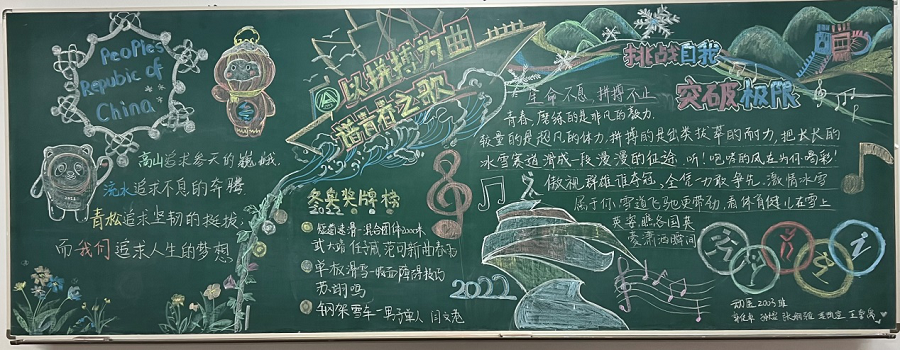 Peoples
Repubic of
China
高山追求参天的巍峨.
流水追求不息的奔腾
青松追求坚韧的挺拔.
而我们追求人生的梦想
以拼搏为曲
谱青春之歌
冬奥奖牌榜
2022
短道速滑·混合团体2000米
武大靖 任子威 范可新 曲春雨
单板滑雪-
苏翊鸣
钢架雪车-男子单人 闫文港
2022
挑战自我
突破极限
生命不息,拼搏不止
青春,磨练的是非凡的毅力.
较量的是超凡的体力,拼搏的是出类拔萃的耐力,把长长的
冰雪赛道滑成一段漫漫的征途.听!咆哮的风在为你喝彩!
傲视群雄谁夺冠,全凭一力敢争先.激情冰雪
属于你,雪道飞驰更带劲,看体育健儿在雪上
英姿
潇洒瞬间
动医2003班